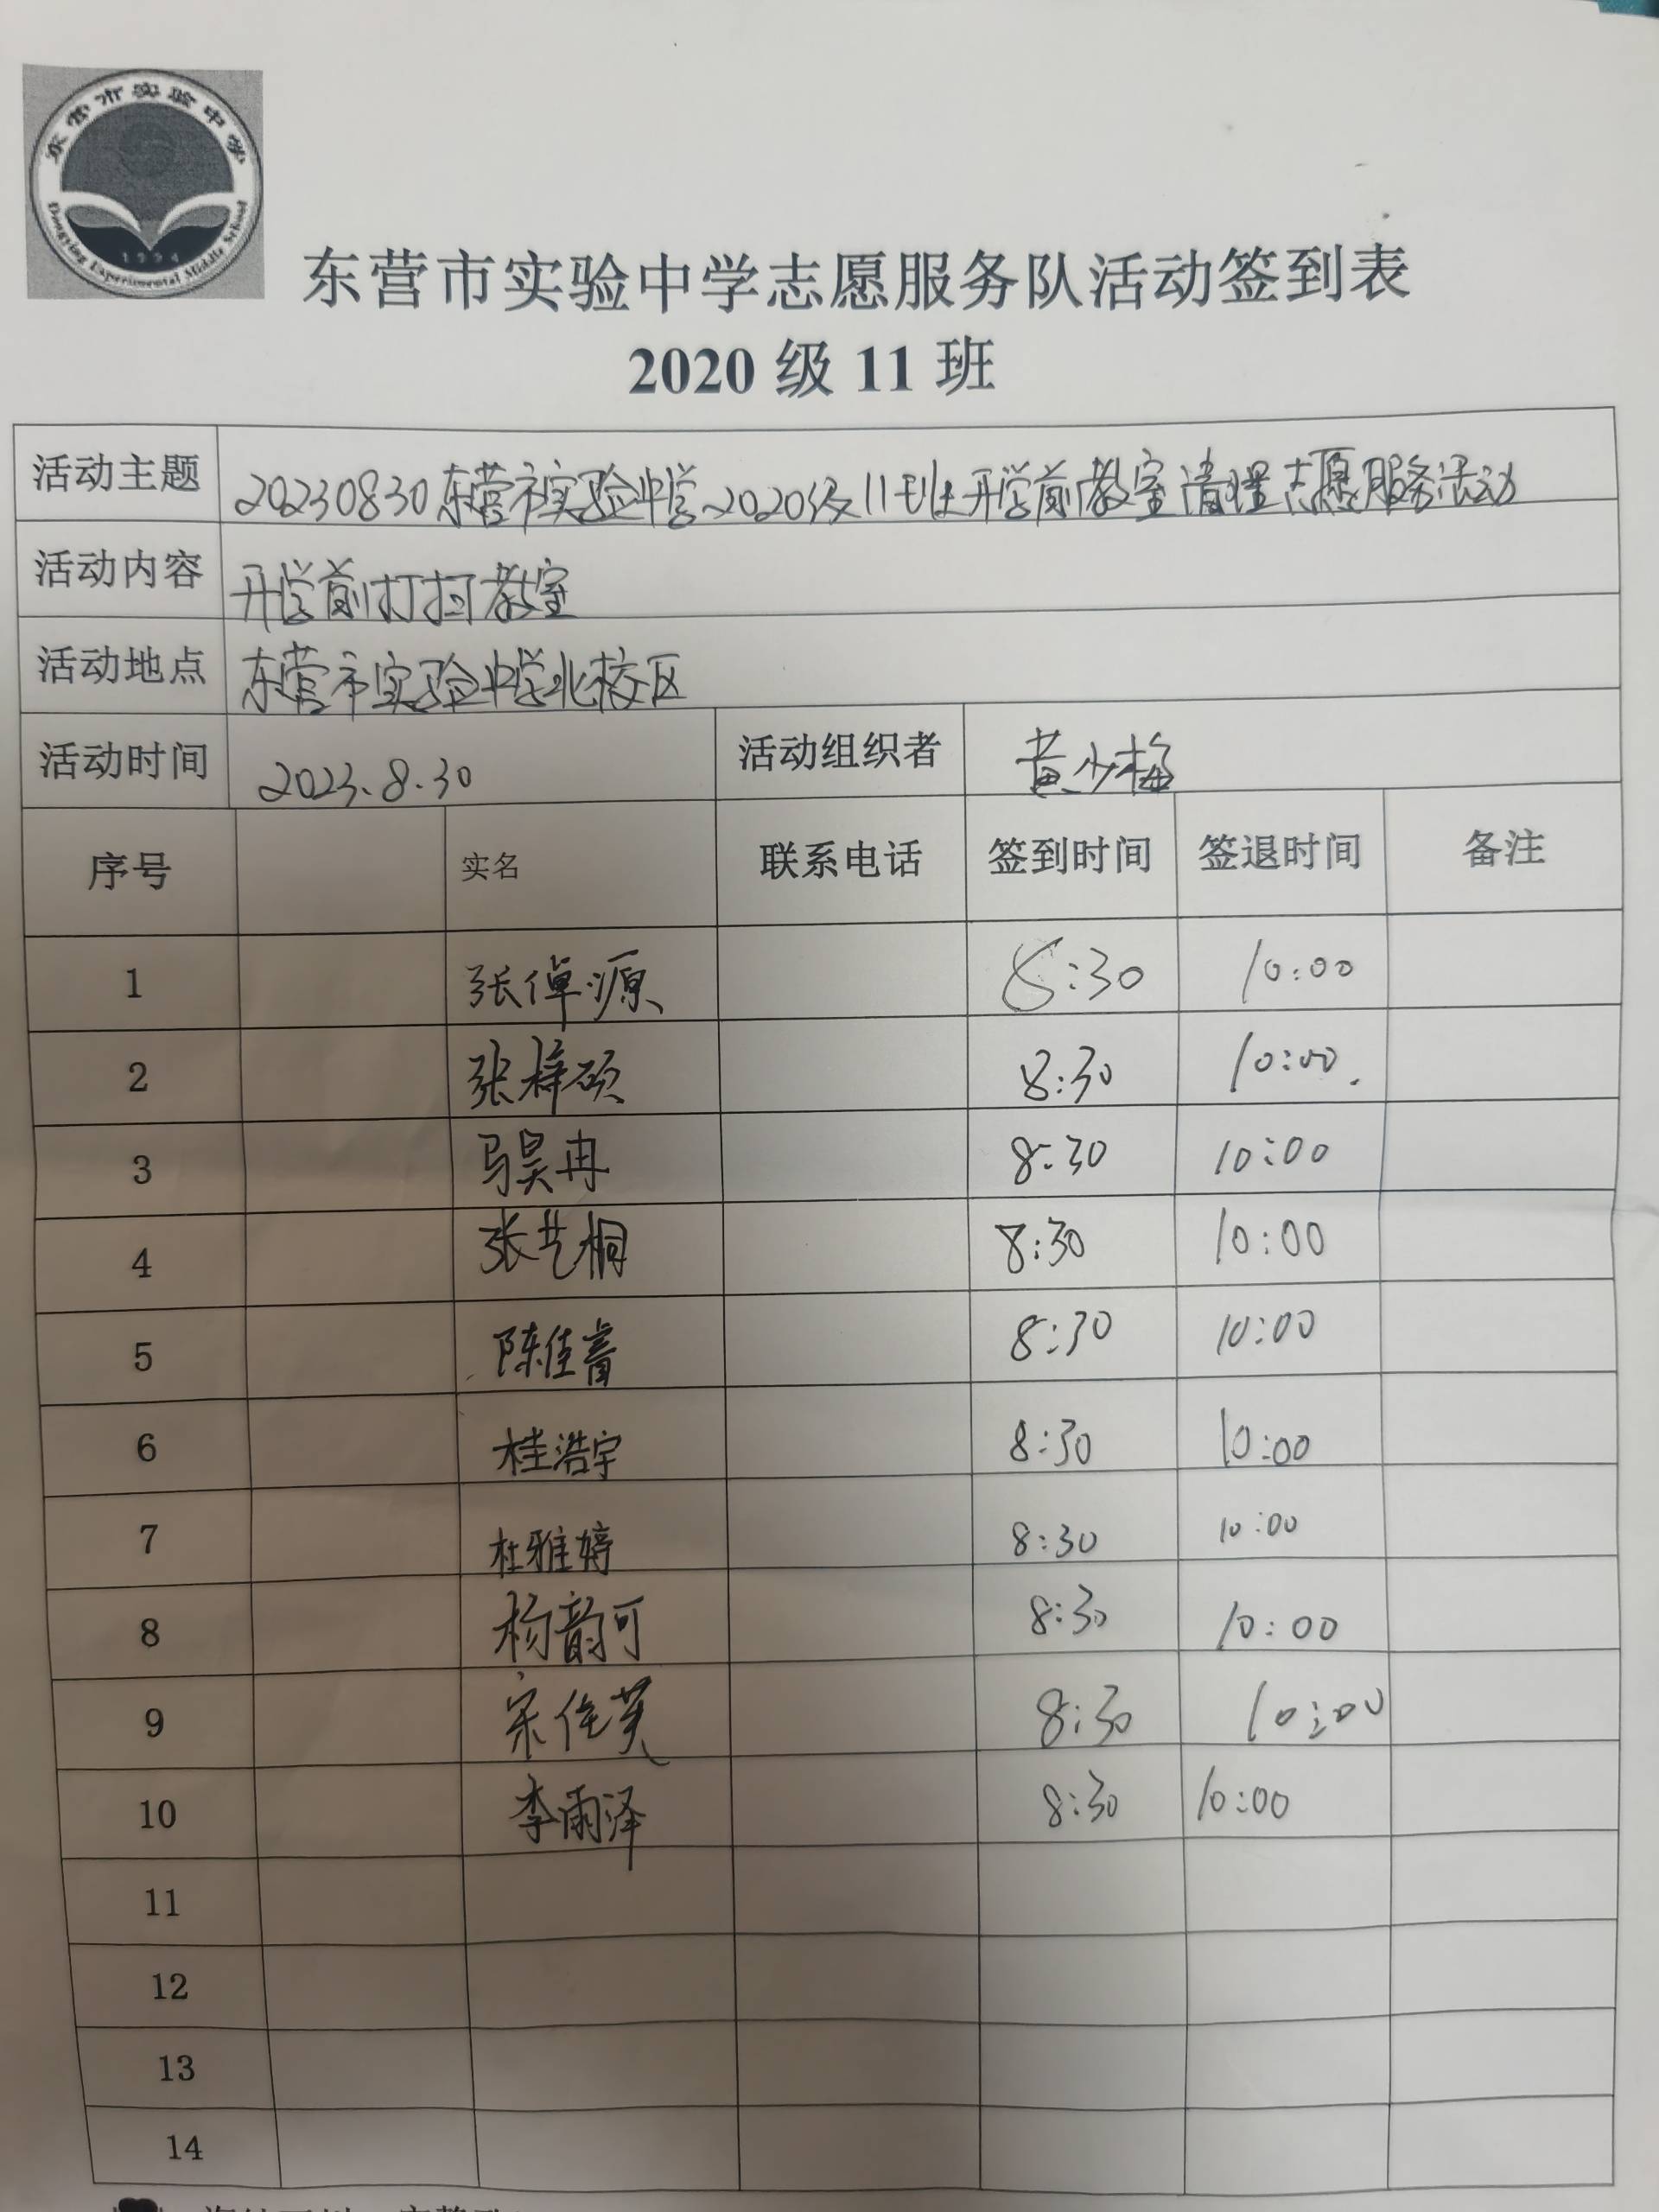 东营市实验中学
Dongying Experimental Middle School
1994
东营市实验中学志愿服务队活动签到表
2020 级 11 班
活动主题 20230830东营市实验中学2020级11班开学前教室清理志愿服务活动
活动内容 开学前打扫教室
活动地点 东营市实验中学北校区
活动时间 2023.8.30 活动组织者 黄少梅
序号 实名 联系电话 签到时间 签退时间 备注
1 张倬源 8:30 10:00
2 张梓硕 8:30 10:00.
3 马昊冉 8:30 10:00
4 张艺桐 8:30 10:00
5 陈佳睿 8:30 10:00
6 桂浩宇 8:30 10:00
7 杜雅婷 8:30 10:00
8 杨韵可 8:30 10:00
9 宋佳芙 8:30 10:00
10 李雨泽 8:30 10:00
11
12
13
14